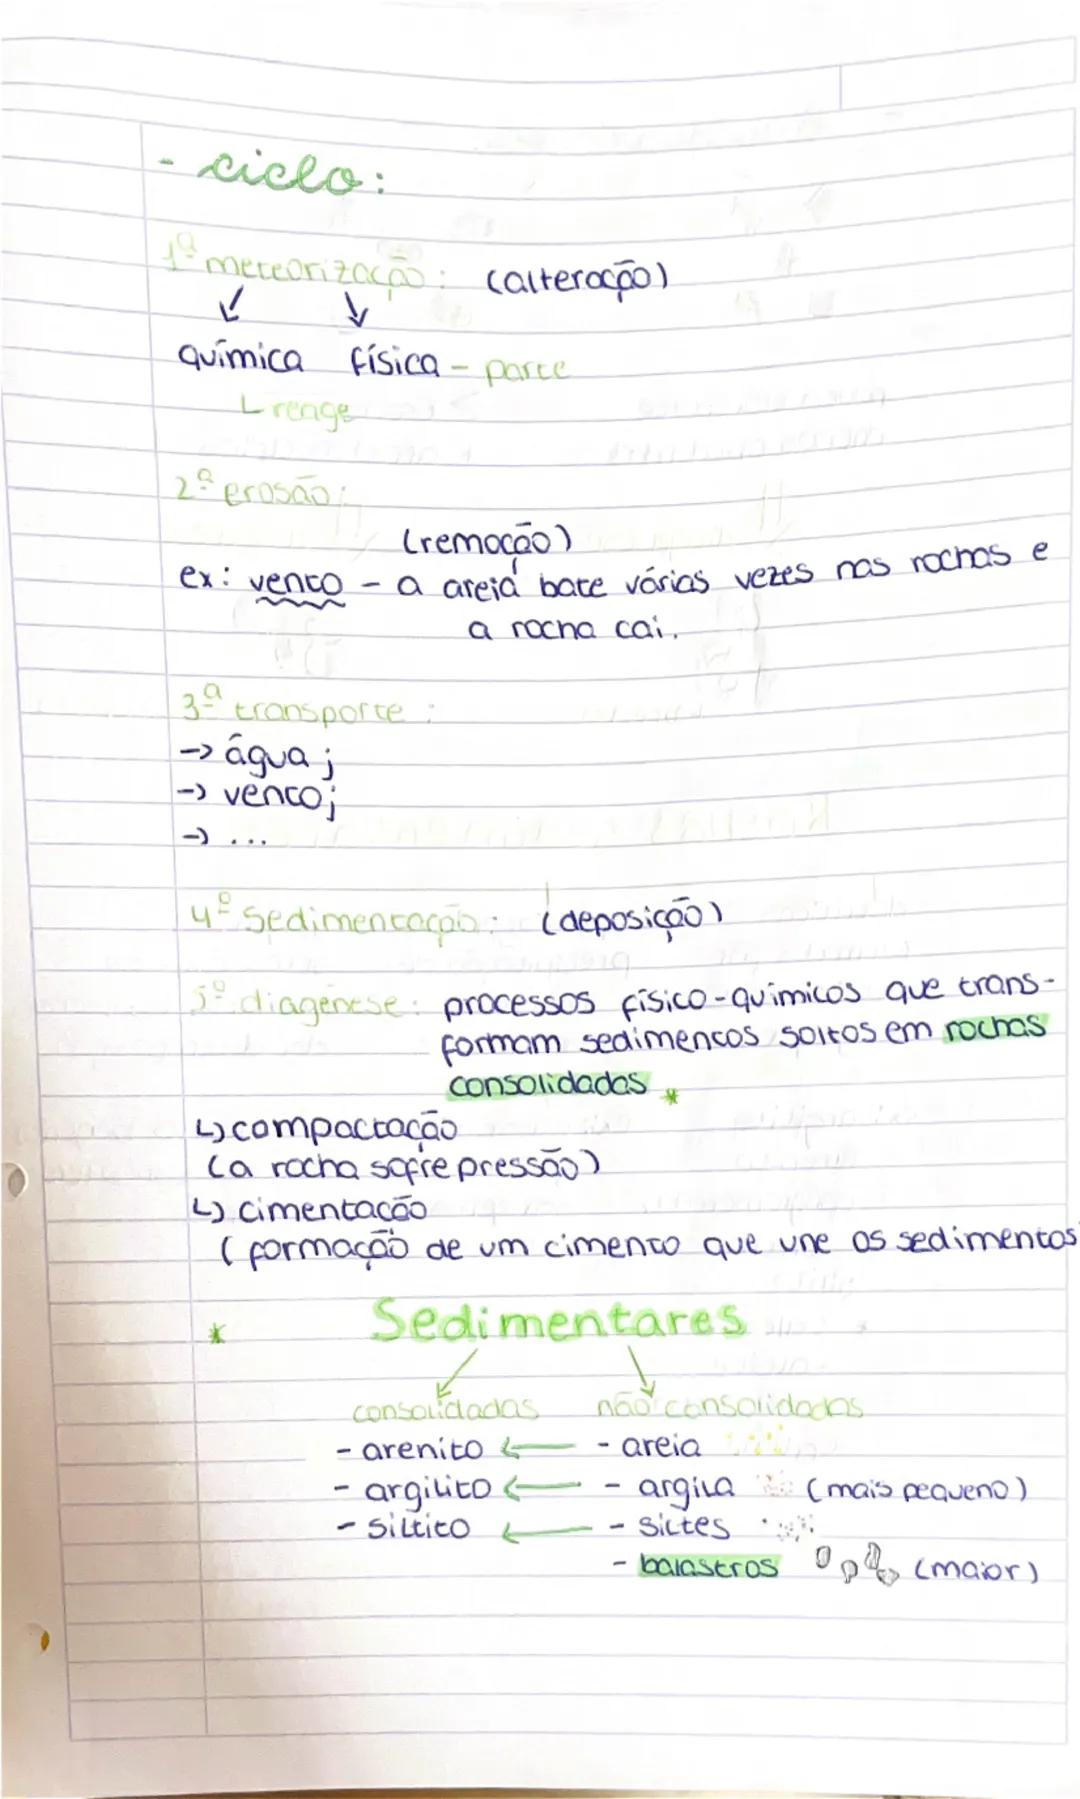 - ciclo:
1ª meteorização: (alteração)
química física - parte
reage
2ª erosão:
(remoção)
ex: vento - a areia bate várias vezes nas rochas e
a rocha cai.
3ª transporte:
-> água;
-> vento;
-> ...
4º Sedimentação: (deposição)
5º diagénese: processos físico-químicos que trans-
formam sedimentos soltos em rochas
consolidadas *
↳ compactação
(a rocha sofre pressão)
↳ cimentação
(formação de um cimento que une os sedimentos
* Sedimentares
consolidadas não consolidadas
- arenito ← - areia
- argilito ← - argila (mais pequeno)
- Siltito ← - Siltes
- balastros (maior)